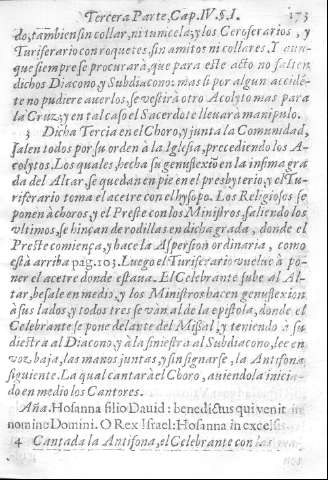 Tercera Parte, Cap. IV. §. I. 173
do, tambien sin collar, ni tumicela; y los Ceroferarios, y
Turiferario con roquetes, sin amitos ni collares. Y aun-
que siempre se procurarà, que para este acto no falten
dichos Diacono, y Subdiacono: mas si por algun accidē-
te no pudiere averlos, se vestirà otro Acolyto mas para
la Cruz; y en tal caso el Sacerdote llevarà manipulo.
3 Dicha Tercia en el Choro, y junta la Comunidad,
salen todos por su orden à la Iglesia, precediendo los A-
colytos. Los quales, hecha su genuflexiō en la insima gra
da del Altar, se quedan en pie en el presbyterio, y el Tu-
riferario toma el acetre con el hysopo. Los Religiosos se
ponen à choros, y el Preste con los Ministros, saliendo los
vltimos, se hincan de rodillas en dicha grada, donde el
Preste comiença, y hace la Aspersion ordinaria, como
està arriba pag. 105. Luego el Turiferario vuelve à po-
ner el acetre donde estaua. El Celebrante sube al Al-
tar, besale en medio, y los Ministros hacen genuflexion
à sus lados, y todos tres se vàn al de la epistola, donde el
Celebrante se pone delante del Missal, y teniendo à su
diestra al Diacono, y à la siniestra al Subdiacono, lee en
voz baja, las manos juntas, y sin signarse, la Antifona
siguiente. La qual cantarà el Choro, auiendola inicia-
do en medio los Cantores.
Aña. Hosanna filio Dauid: benedictus qui venit in
nomine Domini. O Rex Israel: Hosanna in excelsis.
4 Cantada la Antifona, el Celebrante con las